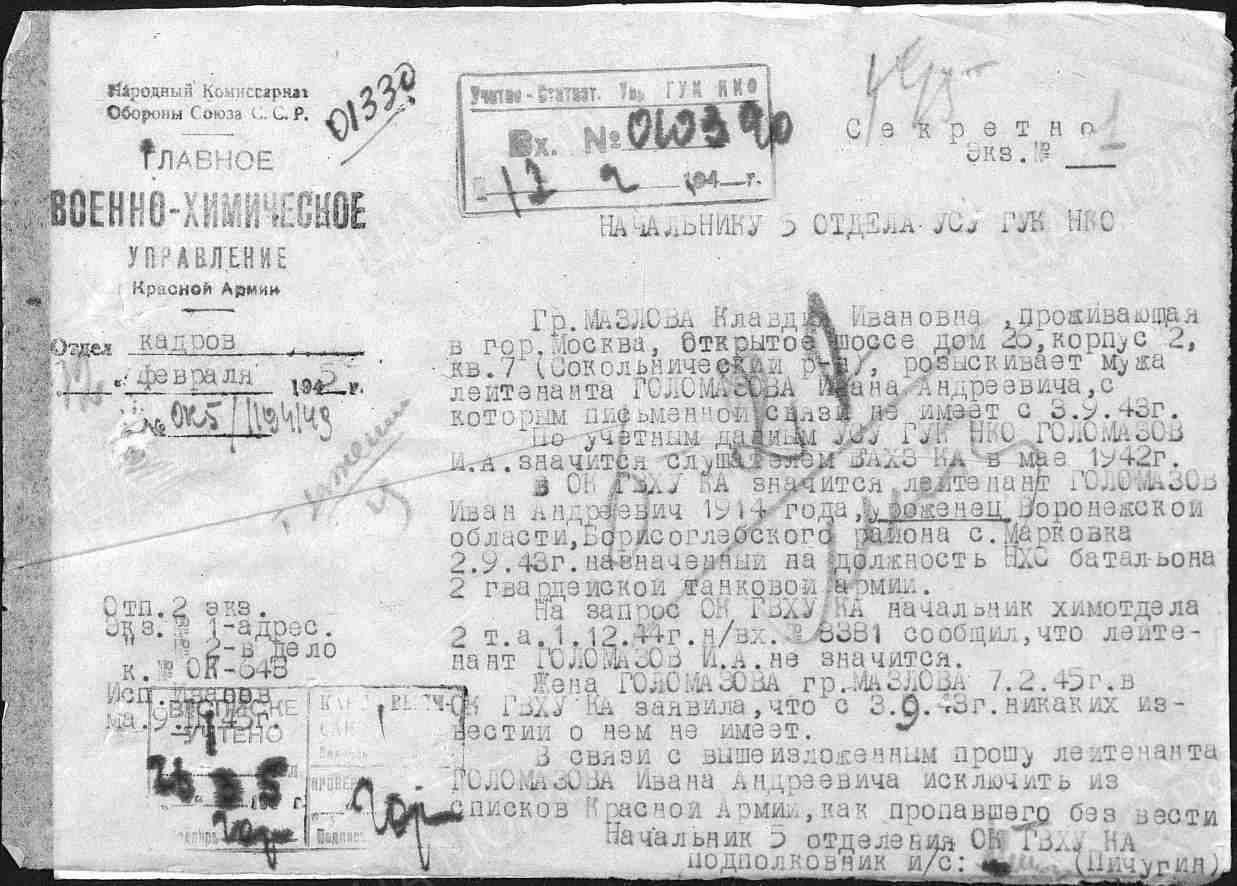 Народный Комиссариат
Обороны Союза С. С. Р.
ГЛАВНОЕ
ВОЕННО-ХИМИЧЕСКОЕ
УПРАВЛЕНИЕ
Красной Армии
Отдел кадров
"12" февраля 1945 г.
№ ОК5/1124/49
01330
Учетно-Статист. Упр. ГУК НКО
Вх. №
194 г.
Секретно
Экз.№ 1
НАЧАЛЬНИКУ 5 ОТДЕЛА УСУ ГУК НКО
Гр.МАЗЛОВА Клавдия Ивановна ,проживающая
в гор.Москва, Открытое шоссе дом 25,корпус 2,
кв.7 (Сокольнический р-н), розыскивает мужа
лейтенанта ГОЛОМАЗОВА Ивана Андреевича,с
которым письменной связи не имеет с 3.9.43г.
По учетным данным УСУ ГУК НКО ГОЛОМАЗОВ
И.А.значится слушателем ВАХЗ КА в мае 1942г.
В ОК ГВХУ КА значится лейтенант ГОЛОМАЗОВ
Иван Андреевич 1914 года, уроженец Воронежской
области,Борисоглебского района с.Марковка
2.9.43г.назначенный на должность НХС батальона
2 гвардейской танковой армии.
На запрос ОК ГВХУ КА начальник химотдела
2 т.а.1.12.44г.н/вх.№ 8381 сообщил,что лейте-
нант ГОЛОМАЗОВ И.А.не значится.
Жена ГОЛОМАЗОВА гр.МАЗЛОВА 7.2.45г.в
ОК ГВХУ КА заявила,что с 3.9.43г.никаких из-
вестий о нем не имеет.
В связи с вышеизложенным прошу лейтенанта
ГОЛОМАЗОВА Ивана Андреевича исключить из
списков Красной Армии,как пропавшего без вести
Начальник 5 отделения ОК ГВХУ КА
подполковник и/с: (Пичугин)
Отп.2 экз.
Экз.№ 1-адрес.
" № 2-в дело
к.№ ОК-648
Исп.
УЧТЕНО
Подпись